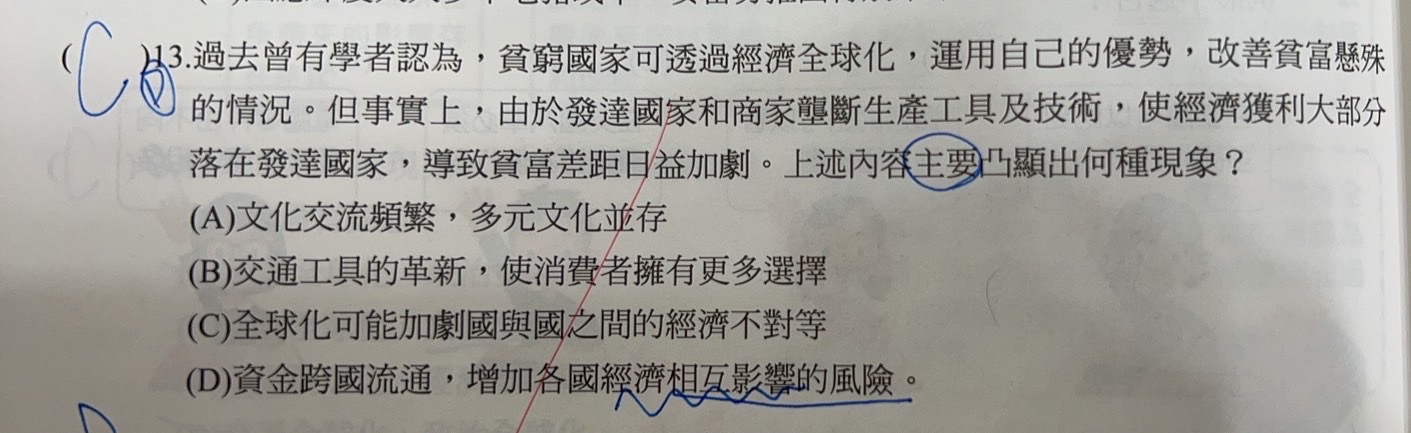 ( C )13.過去曾有學者認為，貧窮國家可透過經濟全球化，運用自己的優勢，改善貧富懸殊
的情況。但事實上，由於發達國家和商家壟斷生產工具及技術，使經濟獲利大部分
落在發達國家，導致貧富差距日益加劇。上述內容主要凸顯出何種現象？
(A)文化交流頻繁，多元文化並存
(B)交通工具的革新，使消費者擁有更多選擇
(C)全球化可能加劇國與國之間的經濟不對等
(D)資金跨國流通，增加各國經濟相互影響的風險。